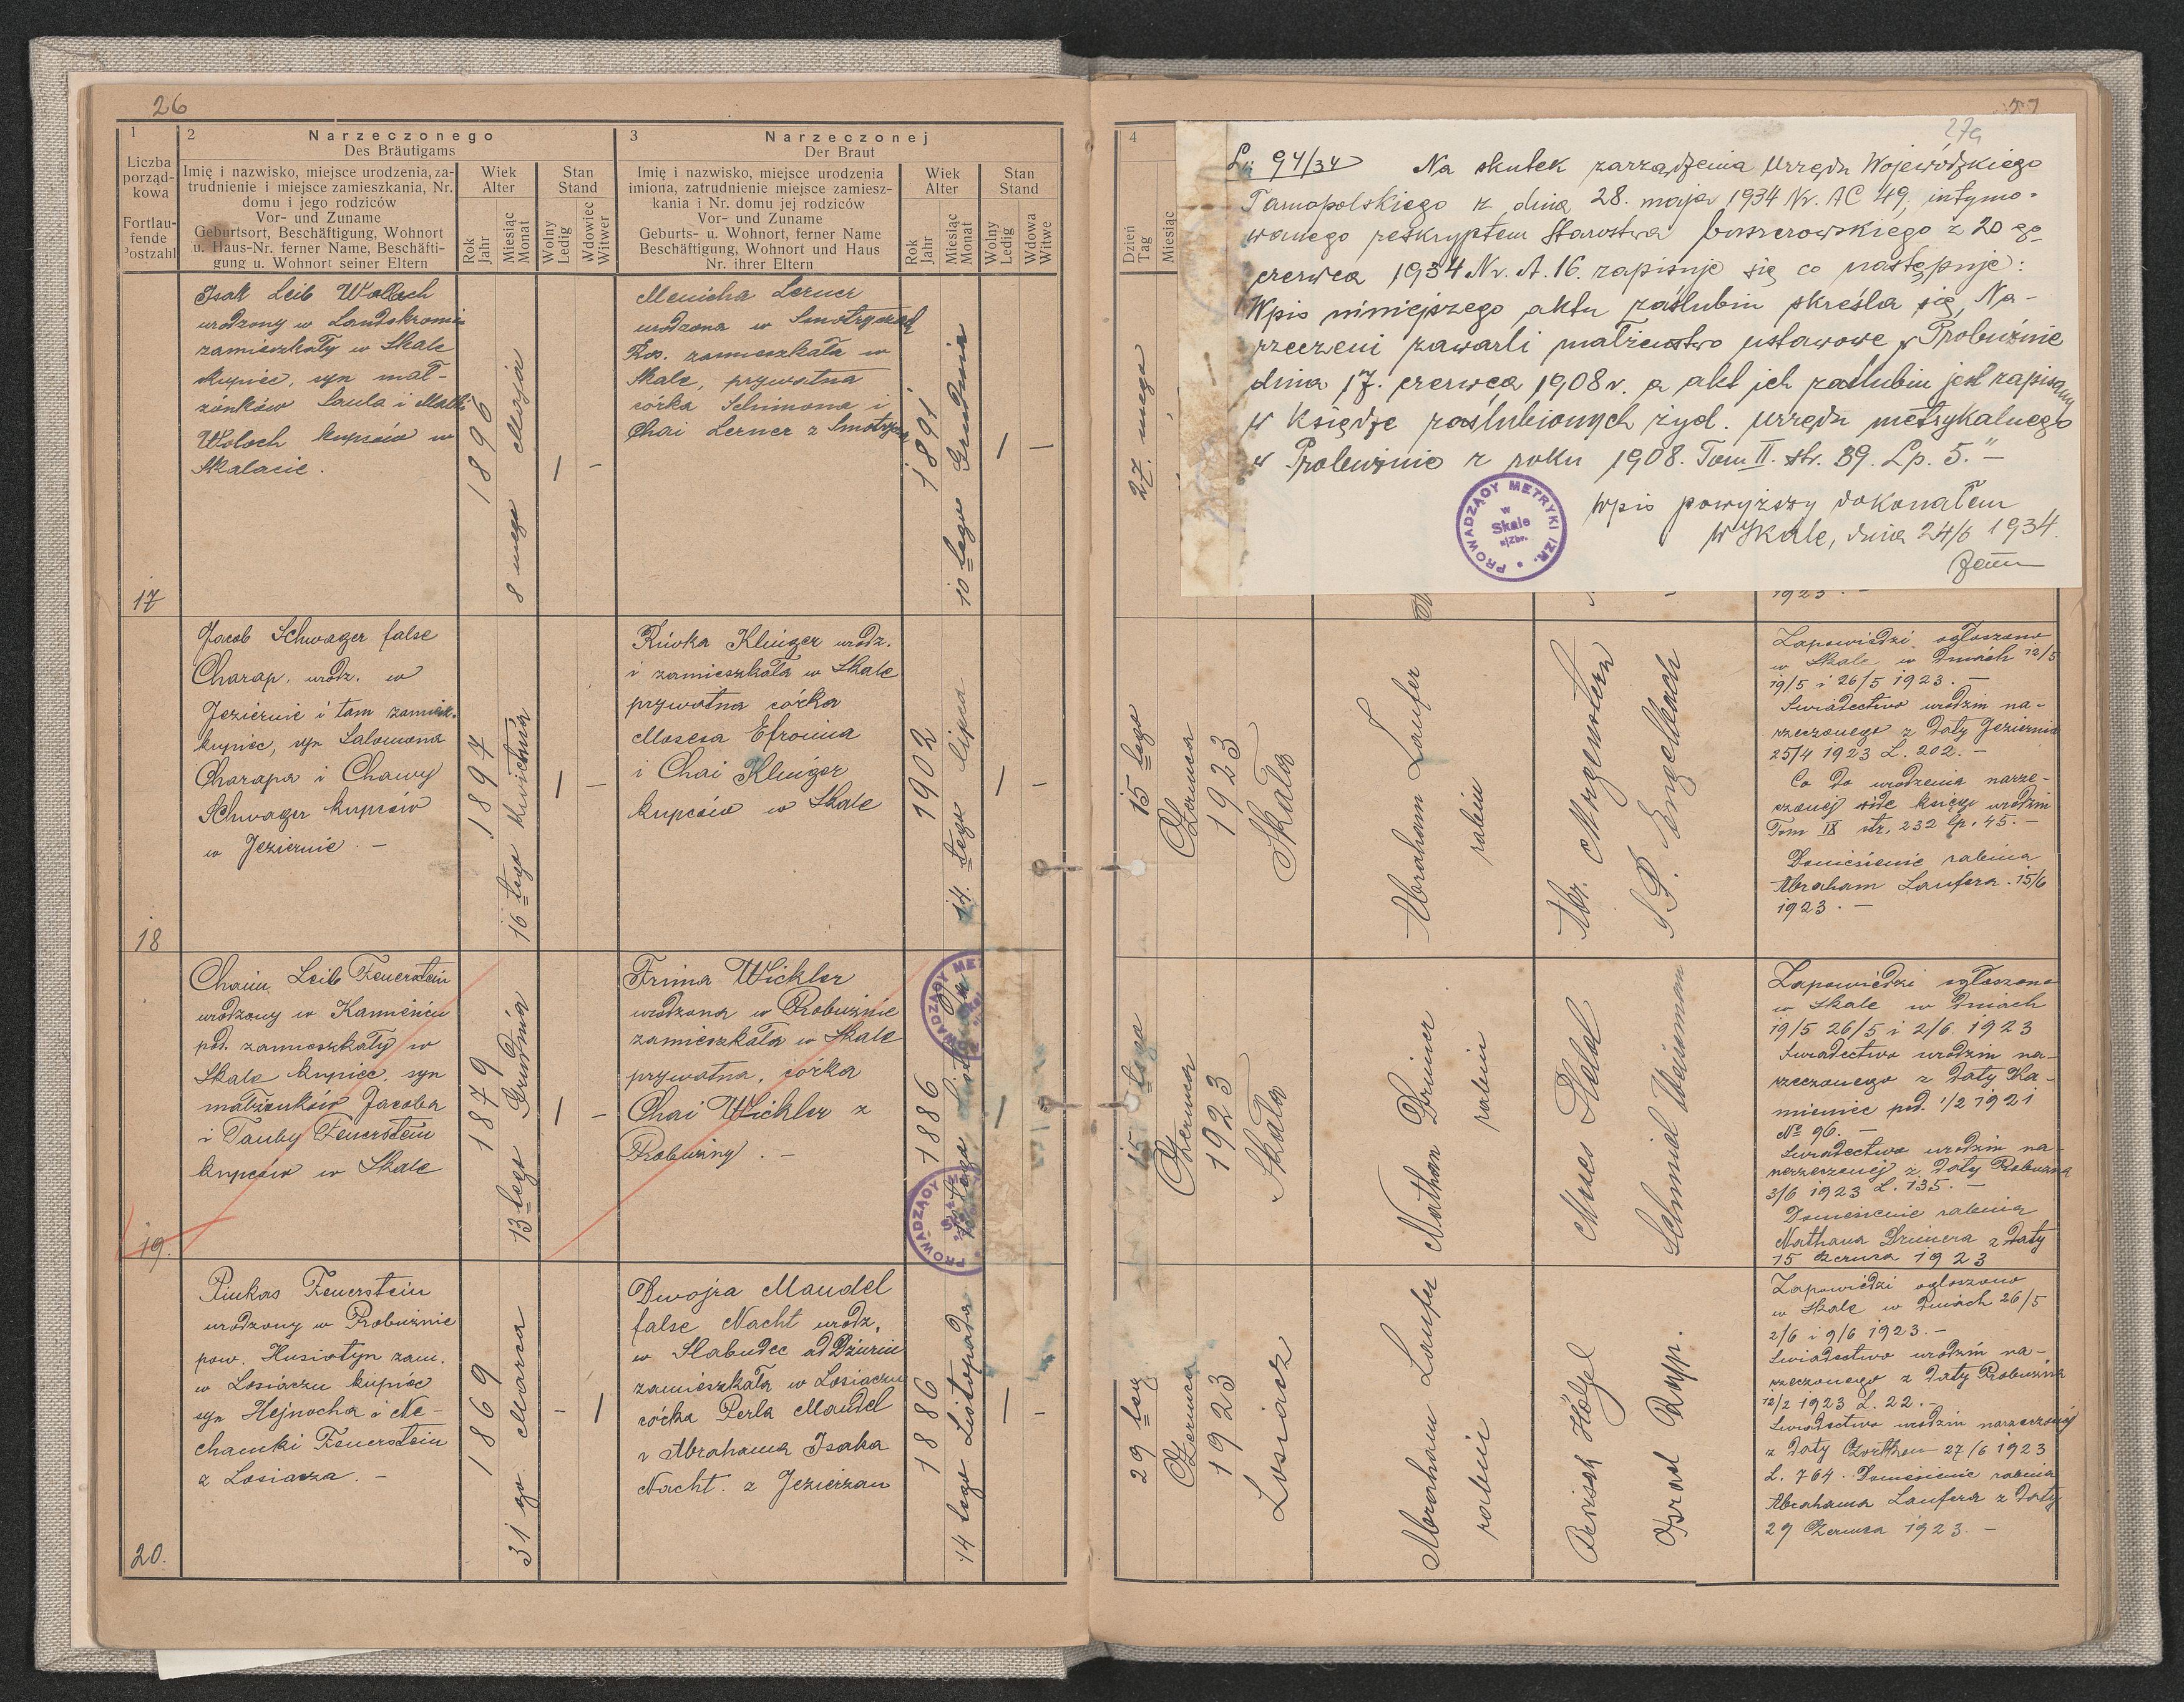 26
1
Liczba
porząd-
kowa
Fortlau-
fende
Postzahl
2
Narzeczonego
Des Bräutigams
Imię i nazwisko, miejsce urodzenia, za-
trudnienie i miejsce zamieszkania, Nr.
domu i jego rodziców
Vor- und Zuname
Geburtsort, Beschäftigung, Wohnort
u. Haus-Nr. ferner Name, Beschäfti-
gung u. Wohnort seiner Eltern
Wiek
Alter
Rok
Jahr
Miesiąc
Monat
Stan
Stand
Wolny
Ledig
Wdowiec
Witwer
3
Narzeczonej
Der Braut
Imię i nazwisko, miejsce urodzenia
imiona, zatrudnienie miejsce zamiesz-
kania i Nr. domu jej rodziców
Vor- und Zuname
Geburts- u. Wohnort, ferner Name
Beschäftigung, Wohnort und Haus
Nr. ihrer Eltern
Wiek
Alter
Rok
Jahr
Miesiąc
Monat
Stan
Stand
Wolny
Ledig
Wdowa
Witwe
17
Isak Leib Wallach
urodzony w Landskroniu
zamieszkały w Skale
kupiec, syn mał-
żonków Saula i Malki
Woloch kupców w
Skalacie.
1896
8 mego Maja
Menicha Lerner
urodzona w
Ros. zamieszkała w
Skale, prywatna
córka Schimona i
Chai Lerner z
1891
10 tego Grudnia
18
Jacob Schwager false
Charap, urodz. w
Jeziernie i tam zamiesz.
kupiec, syn Salomona
Charapa i Chawy
Schwager kupców
w Jeziernie. -
1897
16 tego Kwietnia
Riwka Klinger urodz.
i zamieszkała w Skale
prywatna córka
Mosesa Efroima
i Chai Klinger
kupców w Skale
1902
14. tego lipca
19.
Chaim Leib Feuerstein
urodzony w Kamieńcu
pod. zamieszkały w
Skale kupiec, syn
małżonków Jacoba
i Tauby Feuerstein
kupców w Skale
1879
13 tego Grudnia
Frima Wickler
urodzona w Probużnie
zamieszkała w Skale
prywatna, córka
Chai Wickler z
Probużny. -
1886
20.
Pinkas Feuerstein
urodzony w Probużnie
pow. Husiatyn zam.
w Losiaczu kupiec
syn Hejnocha i Ne-
chamki Feuerstein
z Losiacza. -
1869
31 go Marca
Dwojra Mandel
false Nacht urodz.
w Slabudce ad Dżurin
zamieszkała w Losiaczu
córka Perla Mandel
i Abrahama Isaka
Nacht. z Jezierzan
1886
14 tego Listopada
27a
4
Dzień
Tag
Miesiąc
L: 94/34 Na skutek zarządzenia Urzędu Wojewódzkiego
Tarnopolskiego z dnia 28. maja 1934 Nr. AC 49, intymo-
wanego reskryptem Starostwa borszczowskiego z 20 go
czerwca 1934 Nr. A. 16. zapisuje się co następuje:
"Wpis niniejszego aktu zaślubin skreśla się, Na-
rzeczeni zawarli małżeństwo ustawowe w Probużnie
dnia 17. czerwca 1908 r. a akt ich zaślubin jest zapisany
w Księdze zaślubionych żyd. urzędu metrykalnego
w Probużnie z roku 1908. Tom II. str. 39. Lp. 5." -
Wpis powyższy dokonałem
W Skale, dnia 24/6 1934.
PROWADZĄCY METRYKI IZR.
w
Skale
n/Zbr.
27. mego
1923. -
15 tego
Czerwca
1923
Skała
Abraham Laufer
rabin
Abr. Morgenstern
S. D. Engelbach
Zapowiedzi ogłoszono
w Skale w dniach 12/5
19/5 i 26/5 1923. -
Świadectwo urodzin na-
rzeczonego z daty Jezierna
25/4 1923 L. 202. -
Co do urodzenia narze-
czonej vide księga urodzin
Tom IX str. 232 lp. 45. -
Doniesienie rabina
Abraham Laufera. 15/6
1923. -
15 tego
Czerwca
1923
Skała
Nathan Drimer
rabin
Moses Held
Schmiel Weisman
Zapowiedzi ogłoszono
w Skale w dniach
19/5 26/5 i 2/6. 1923
Świadectwo urodzin na-
rzeczonego z daty Ka-
mieniec pod. 1/2 1921
№ 96. -
Świadectwo urodzin na-
rzeczonej z daty Probużna
3/6 1923 L. 135. -
Doniesienie rabina
Nathana Drimera z daty
15 Czerwca 1923
29 tego
Czerwca
1923
Losiacz
Abraham Laufer
rabin
Berisch Hölzel
Israel Rapp.
Zapowiedzi ogłoszono
w Skale w dniach 26/5
2/6 i 9/6 1923. -
Świadectwo urodzin na-
rzeczonego z daty Probużna
12/2 1923 L. 22. -
Świadectwo urodzin narzeczonej
z daty Czortków 27/6 1923
L. 764. Doniesienie rabina
Abrahama Laufera z daty
29 Czerwca 1923. -